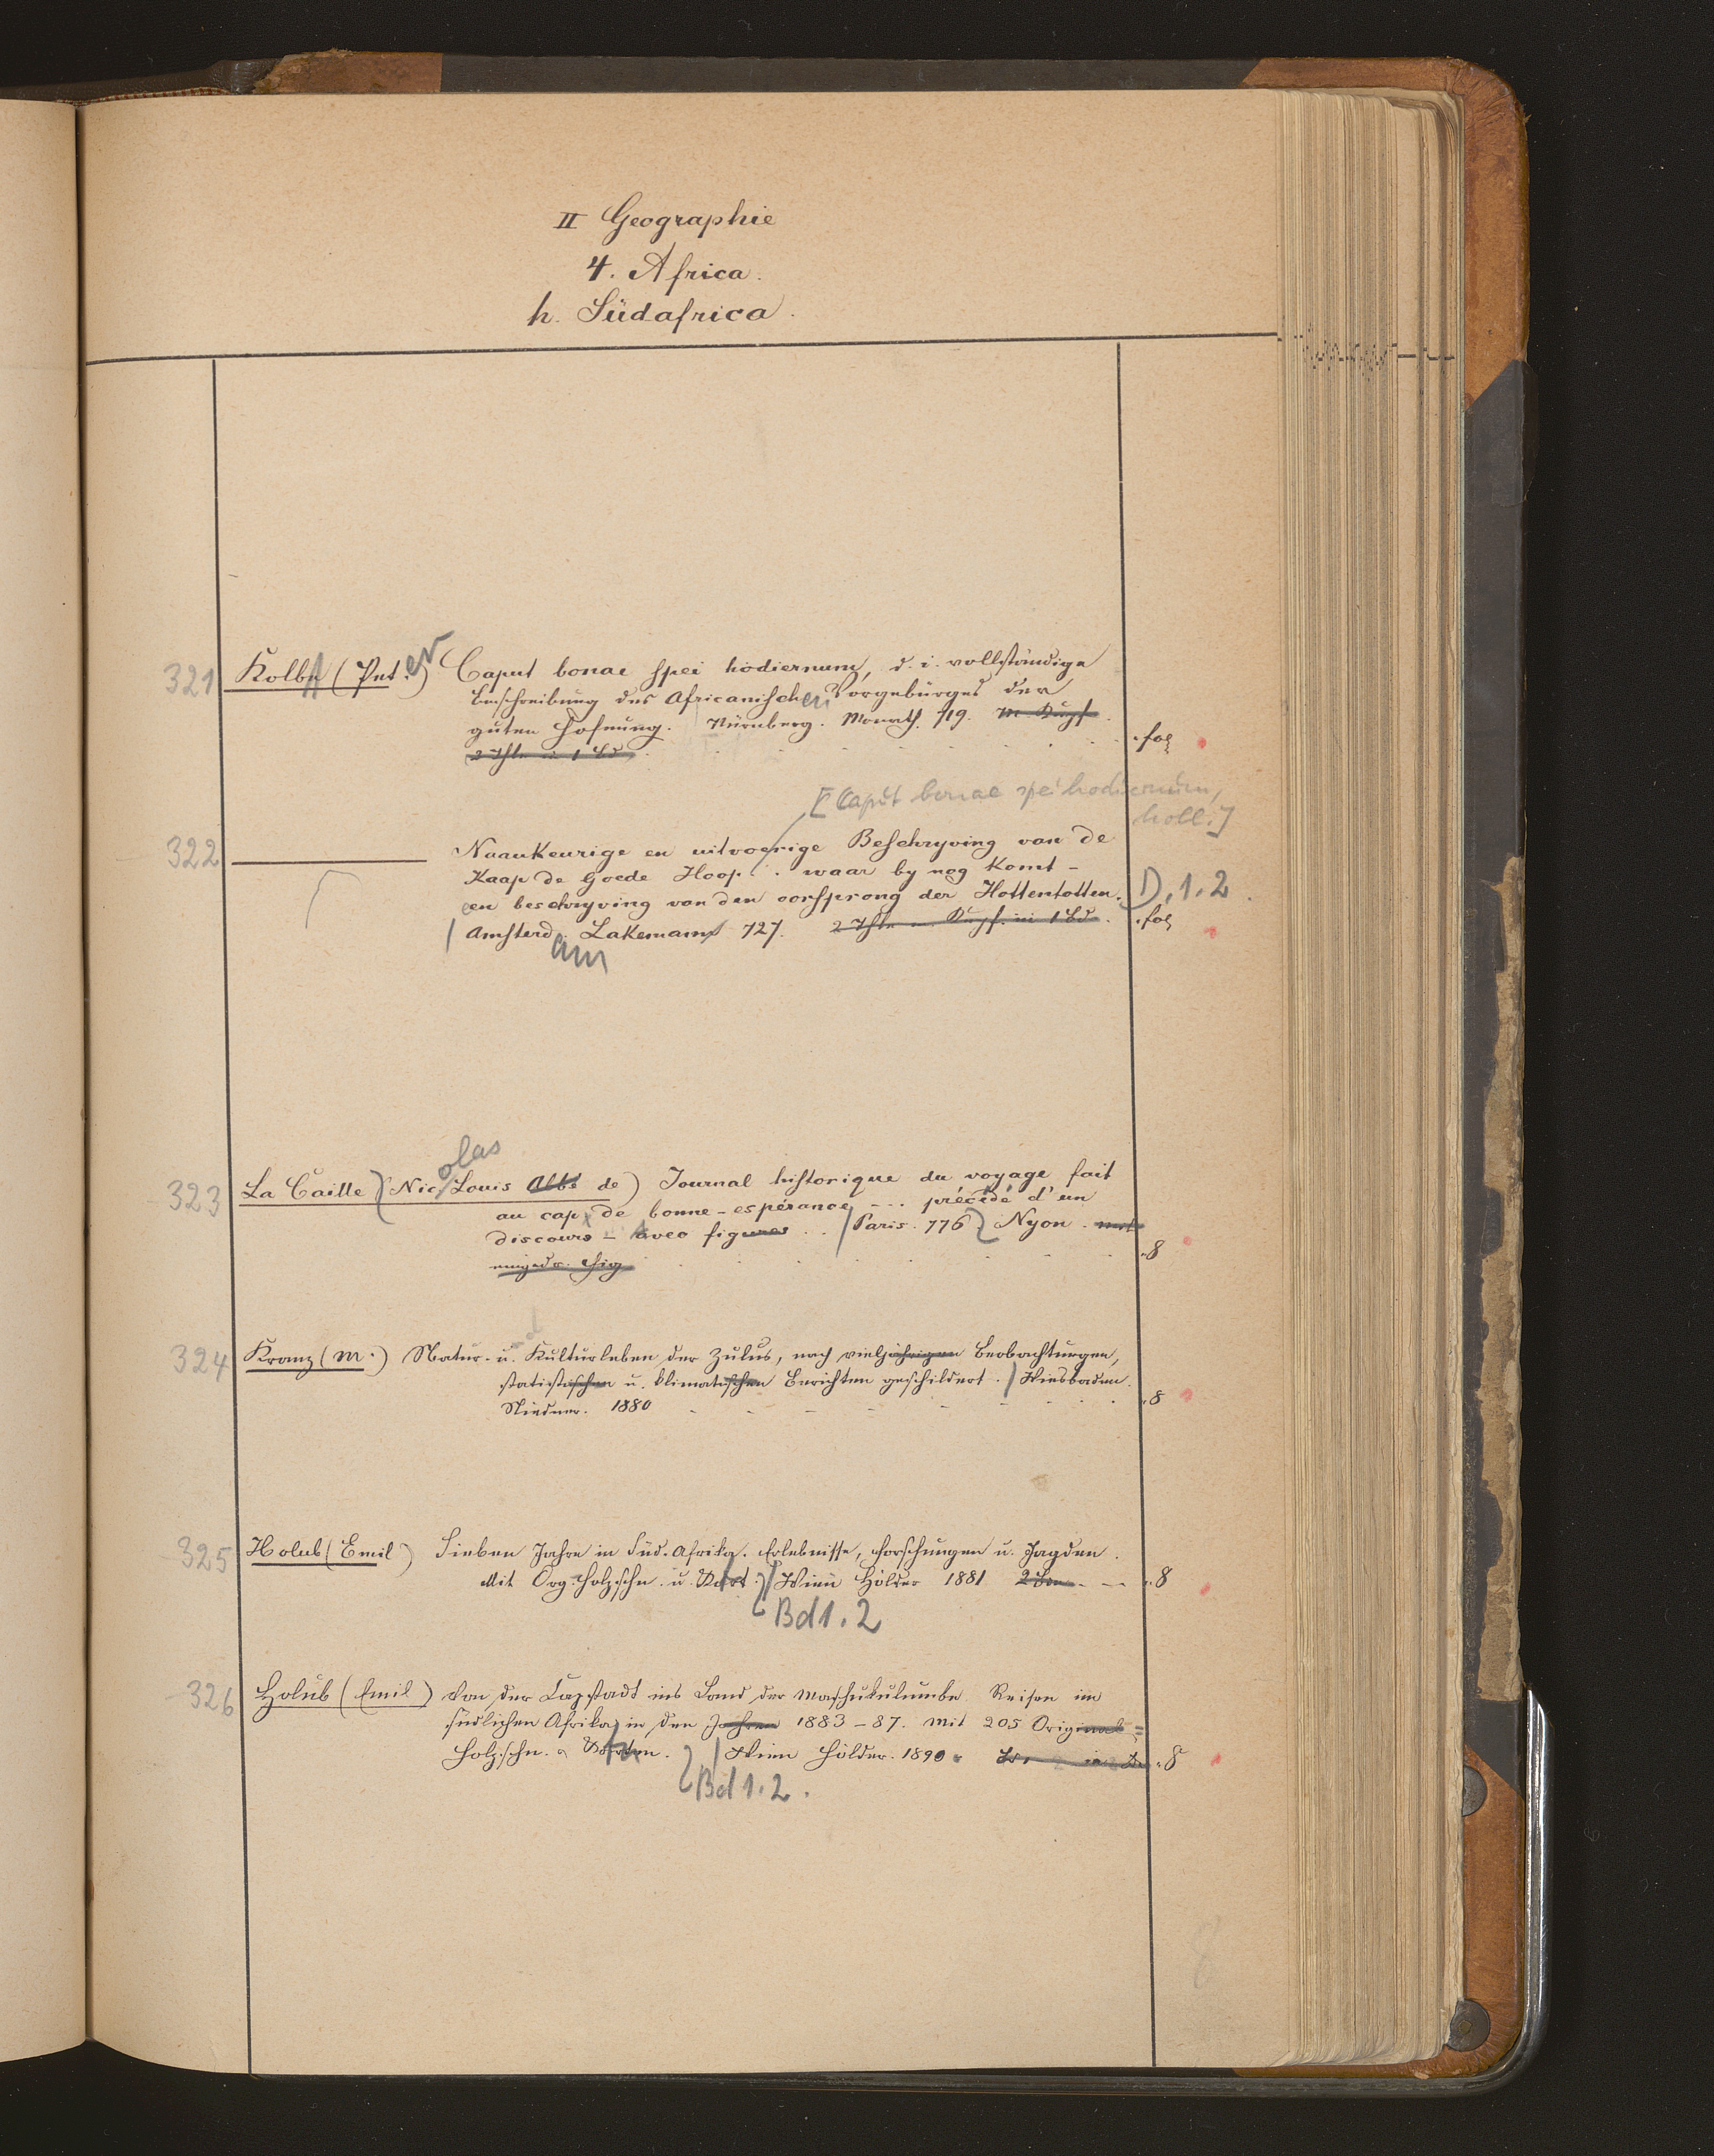 II Geographie
4. Africa.
h. Südafrica.
321 Kolbe (Pet.er) Caput bonae spei hodiernum, d. i. vollständige
Beschreibung des Africanischen Vorgebürges der
guten Hofnung. Nürnberg. Monath. 719. m. Kupf.
2 Thle in 1 Bd . fol
[Caput bonae spei hodiernum,
holl.]
322 Naaukeurige en uitvoerige Beschryving van de
Kaap de Goede Hoop . . waar by nog komt -
een beschryving van den oorsprong der Hottentotten. D. 1. 2
Amsterd.am Lakeman 727. 2 Thle m. Kupf. in 1 Bd. . fol
323 La Caille (Nicolas Louis Abbé de) Journal historique du voyage fait
au cap de bonne-espérance --- précédé d'un
discours - Avec figures . . Paris. 776 Nyon. mit
eingedr. Fig . 8
324 Kranz (M.) Natur- und Kulturleben der Zulus, nach vieljährigen Beobachtungen,
statistischen u. klimatischen Berichten geschildert. Wiesbaden.
Niedner. 1880 . 8
325 Holub (Emil) Sieben Jahre in Süd-Afrika. Erlebnisse, Forschungen u. Jagden.
Mit Org. Holzschn. u. Kart. Wien Hölder 1881 2 Bde . 8
Bd 1. 2
326 Holub (Emil) Von der Capstadt ins Land der Maschukulumbe Reisen im
südlichen Afrika in den Jahren 1883-87. Mit 205 Original=
Holzschn. Karten. Wien Hölder. 1890 . 8
Bd 1. 2.